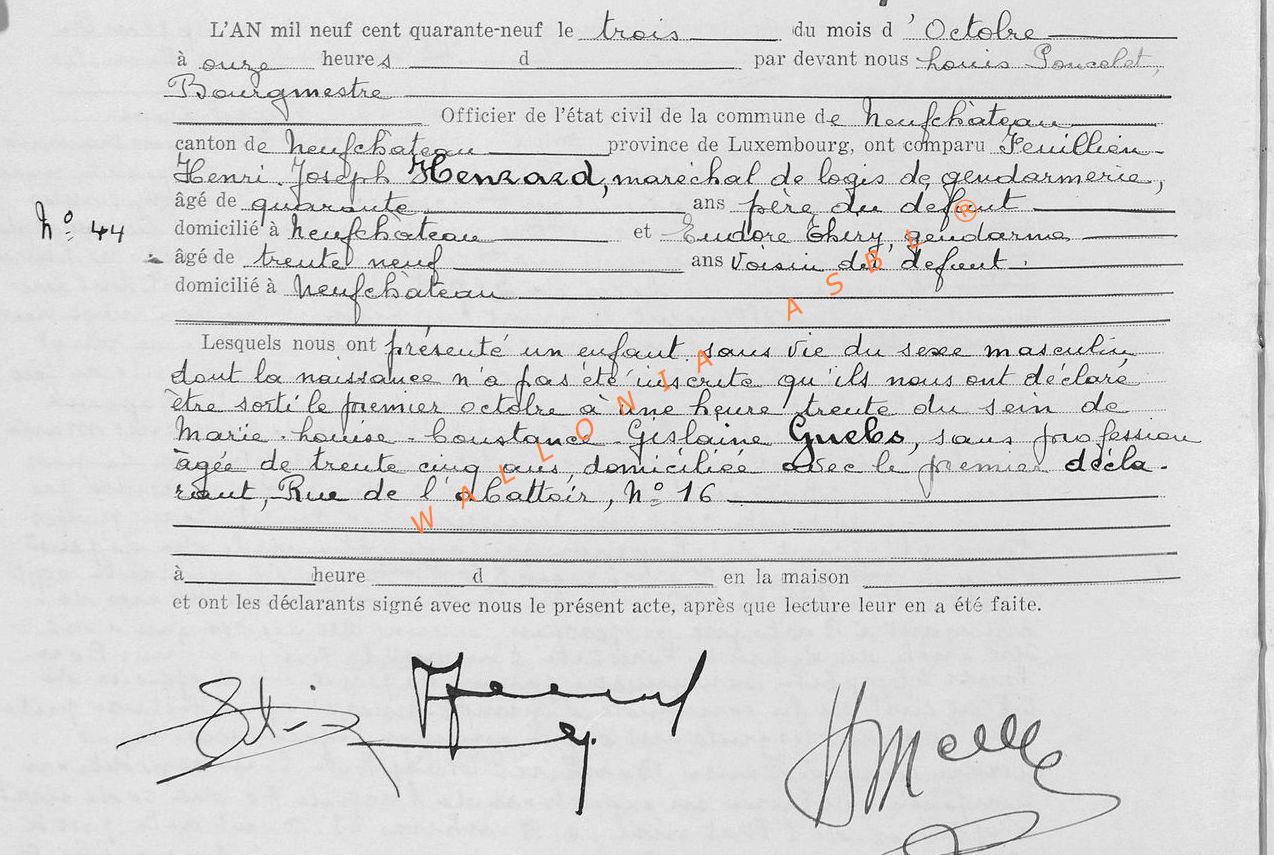 L'AN mil neuf cent quarante-neuf le trois du mois d'Octobre
à onze heures d par devant nous Louis Poncelet,
Bourgmestre
Officier de l'état civil de la commune de Neufchâteau
canton de Neufchâteau province de Luxembourg, ont comparu Feuillien
Henri Joseph Henrard, maréchal de logis de gendarmerie,
âgé de quarante ans père du defunt
N° 44
domicilié à Neufchâteau et Eudore Thiry, gendarme
âgé de trente neuf ans voisin du defunt
domicilié à Neufchâteau
Lesquels nous ont présenté un enfant sans vie du sexe masculin
dont la naissance n'a pas été inscrite qu'ils nous ont déclaré
être sorti le premier octobre à une heure trente du sein de
Marie-Louise-Constance-Gislaine Guebs, sans profession
âgée de trente cinq ans domiciliée avec le premier décla-
rant, Rue de l'abattoir, N° 16
à heure d en la maison
et ont les déclarants signé avec nous le présent acte, après que lecture leur en a été faite.
WALLONIA ASBL ®